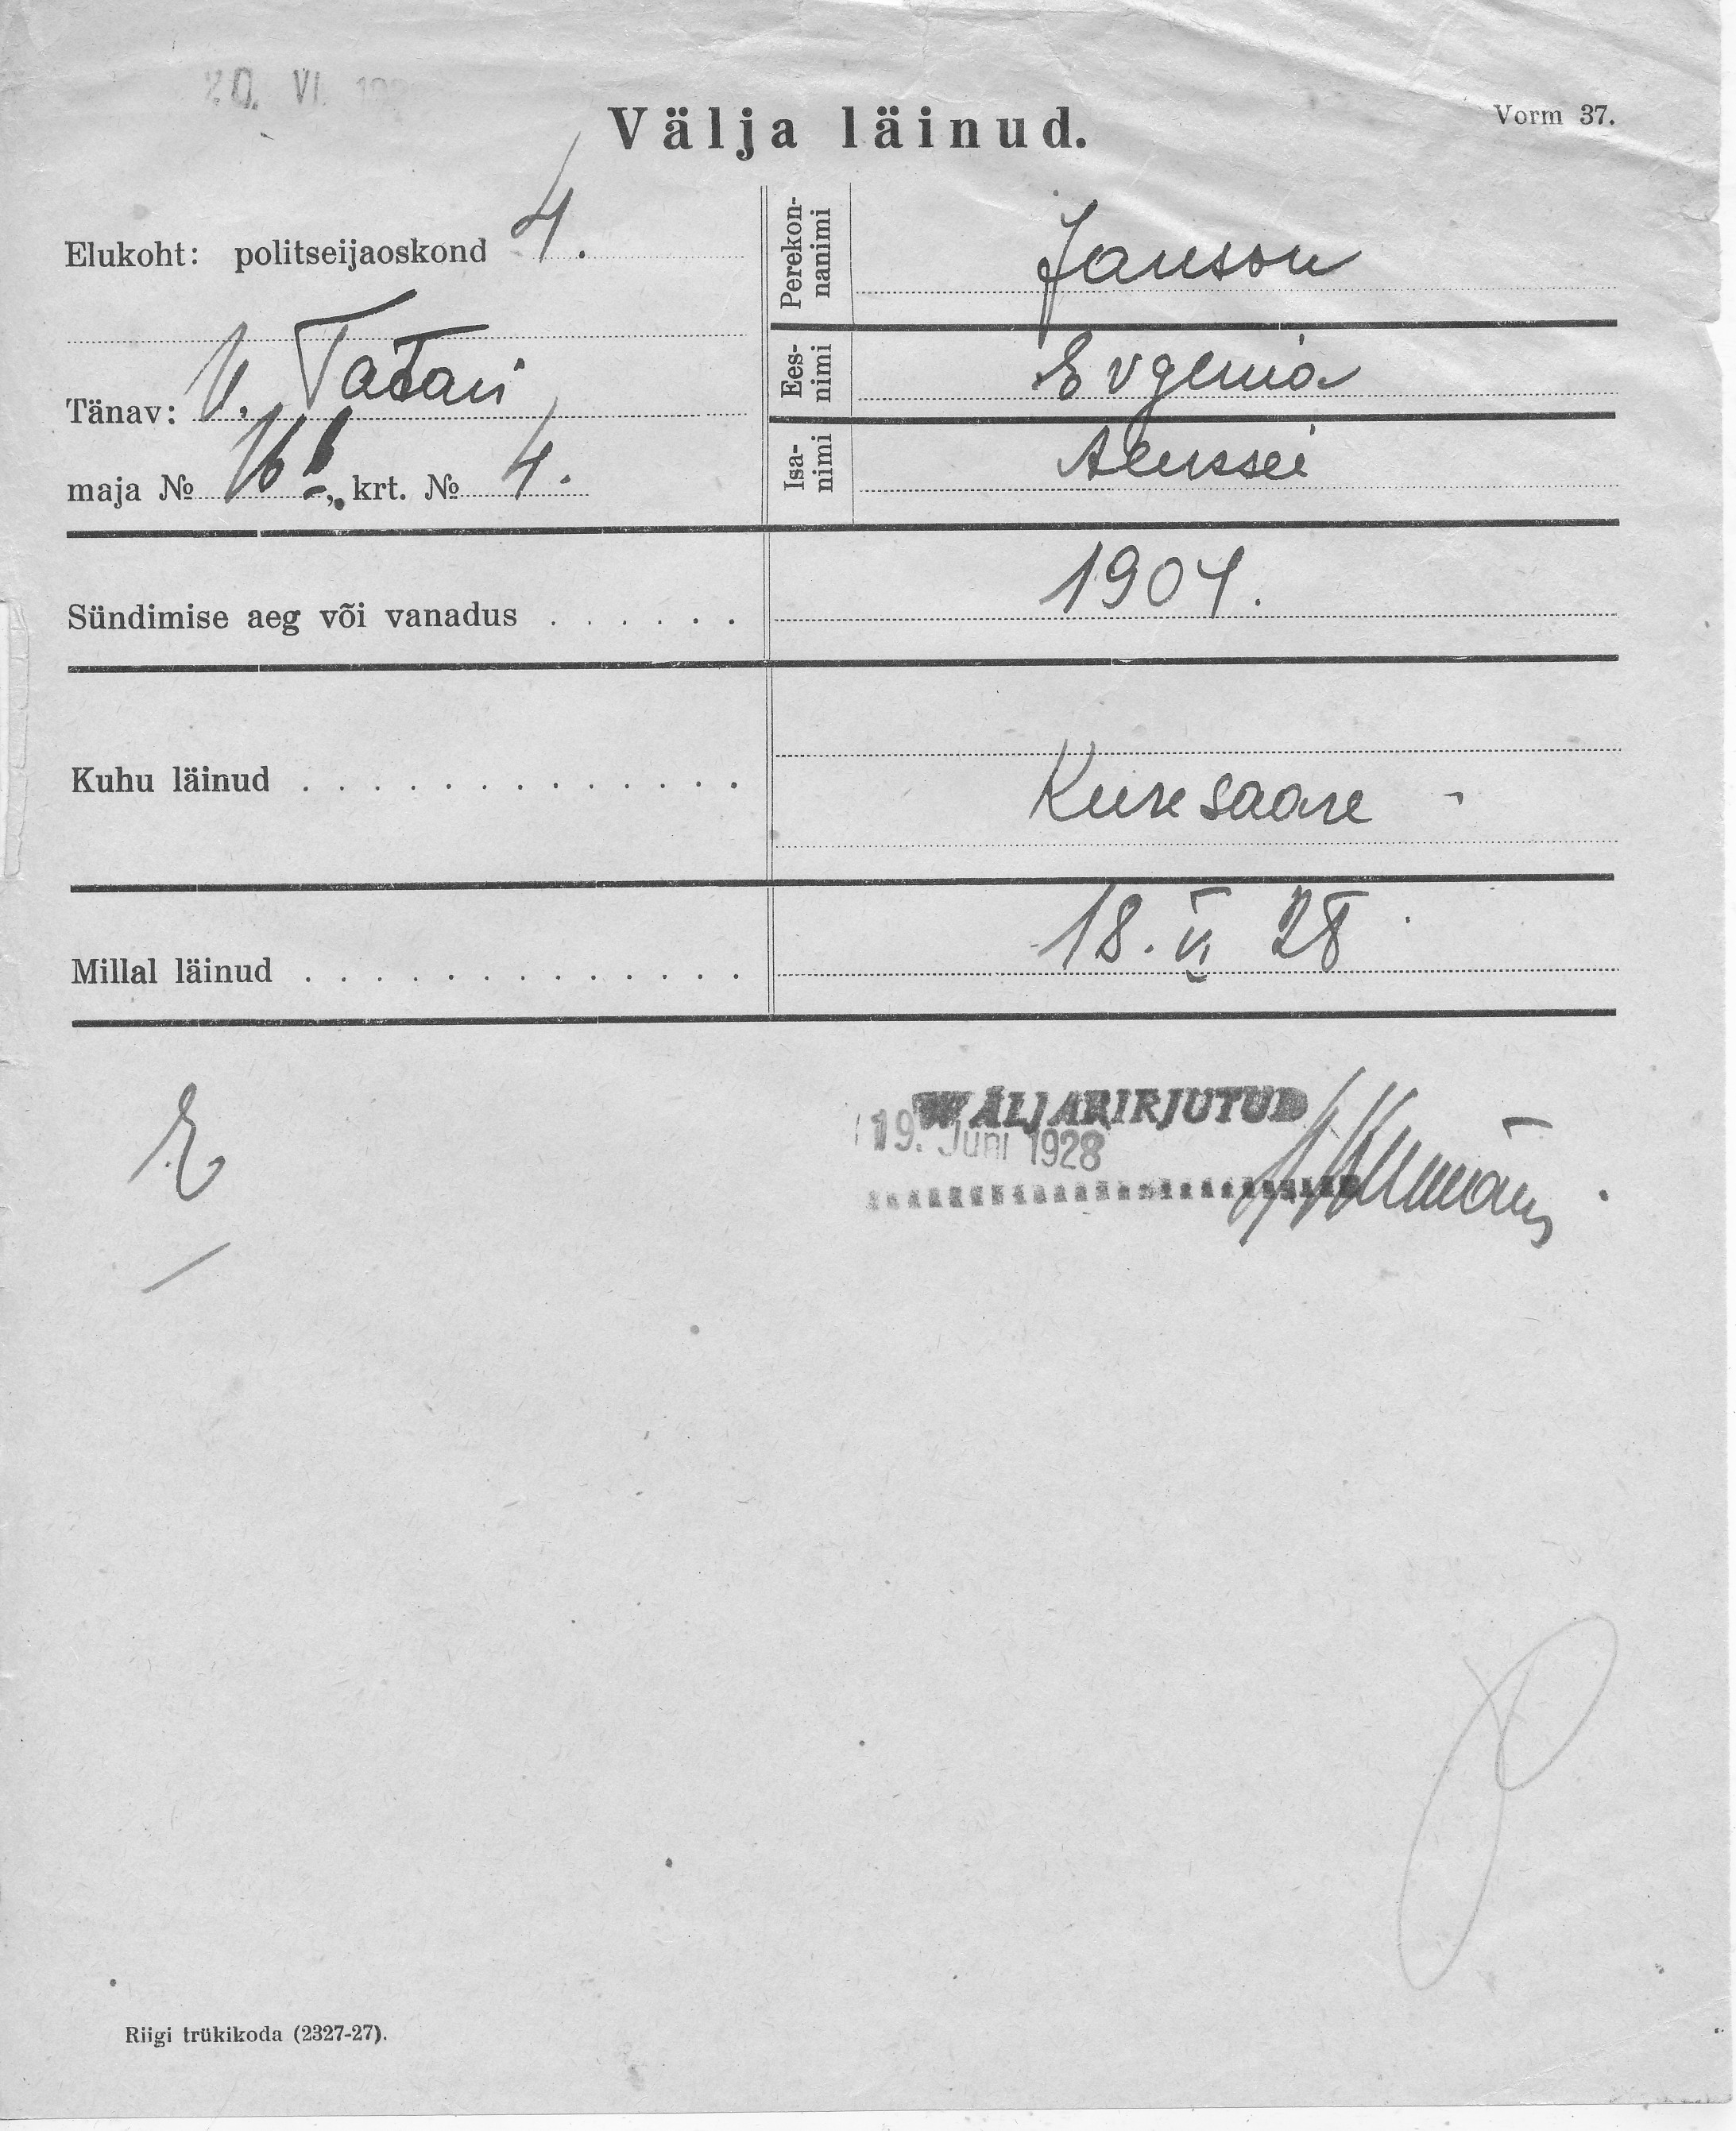 20. VI.
Vorm 37.
Välja läinud.
Elukoht: politseijaoskond 4.
Tänav: V. Tatari
maja № 16 b, krt. № 4.
Perekon-
nanimi
Janson
Ees-
nimi
Evgenia
Isa-
nimi
Alexsei
Sündimise aeg või vanadus . . . . . . 1904.
Kuhu läinud . . . . . . . . . . . . . Kuresaare
Millal läinud . . . . . . . . . . . . . 18. VI 28
WÄLJAKIRJUTUD
19. Juni 1928
Riigi trükikoda (2327-27).